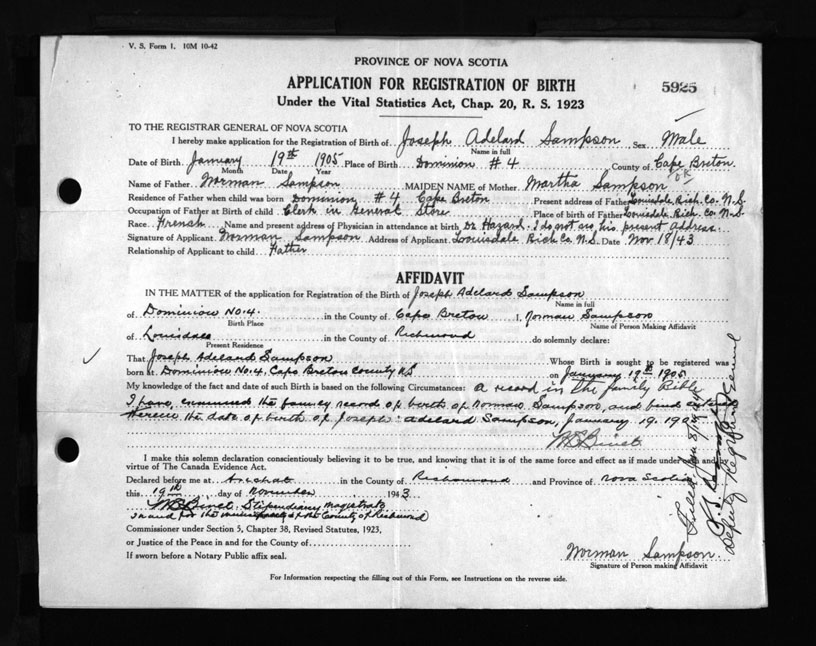 V. S. Form 1. 10M 10-42
PROVINCE OF NOVA SCOTIA
APPLICATION FOR REGISTRATION OF BIRTH
5925
Under the Vital Statistics Act, Chap. 20, R. S. 1923
TO THE REGISTRAR GENERAL OF NOVA SCOTIA
I hereby make application for the Registration of Birth of Joseph Adelard Sampson Sex Male
Name in full
Date of Birth January 19th 1905 Place of Birth Dominion # 4 County of Cape Breton
Month Date Year
Name of Father Norman Sampson MAIDEN NAME of Mother Martha Sampson
Residence of Father when child was born Dominion # 4 Cape Breton Present address of Father Louisdale, Rich. Co. N.S.
Occupation of Father at Birth of child Clerk in General Store Place of birth of Father Louisdale, Rich. Co. N.S.
Race French Name and present address of Physician in attendance at birth Dr Hazard. I do not his present address.
Signature of Applicant Norman Sampson Address of Applicant Louisdale Rich Co. N.S. Date Nov 18/43
Relationship of Applicant to child Father
AFFIDAVIT
IN THE MATTER of the application for Registration of the Birth of Joseph Adelard Sampson
Name in full
of Dominion No. 4. in the County of Cape Breton I, Norman Sampson
Birth Place Name of Person Making Affidavit
of Louisdale in the County of Richmond do solemnly declare:
Present Residence
That Joseph Adelard Sampson Whose Birth is sought to be registered was
born at Dominion No. 4, Cape Breton County NS on January 19th 1905
My knowledge of the fact and date of such Birth is based on the following Circumstances: A record in the family Bible
I have examined the family record of birth of Norman Sampson, and find entered
therein the date of birth of Joseph Adelard Sampson, January 19. 1905
I make this solemn declaration conscientiously believing it to be true, and knowing that it is of the same force and effect as if made under and by
virtue of The Canada Evidence Act.
Declared before me at Arichat in the County of Richmond and Province of Nova Scotia
this 19th day of November 1943
Stipendiary magistrate
in and for the municipality of the County of Richmond
Commissioner under Section 5, Chapter 38, Revised Statutes, 1923,
or Justice of the Peace in and for the County of
If sworn before a Notary Public affix seal.
Norman Sampson
Signature of Person making Affidavit
For Information respecting the filling out of this Form, see Instructions on the reverse side.
Filed Jan 8/1944
Deputy Registrar General